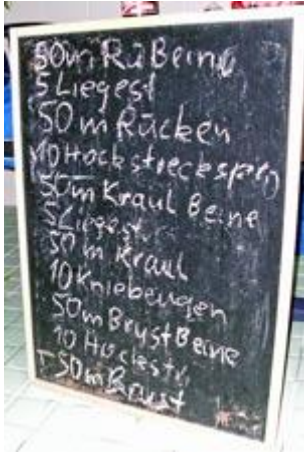 50m Rü Beine
5 Liegest
50 m Rücken
10 Hockstrecksprg
50m Kraul Beine
5 Liegest
50 m Kraul
10 Kniebeugen
50m Brust Beine
10 Hockstr
50m Brust